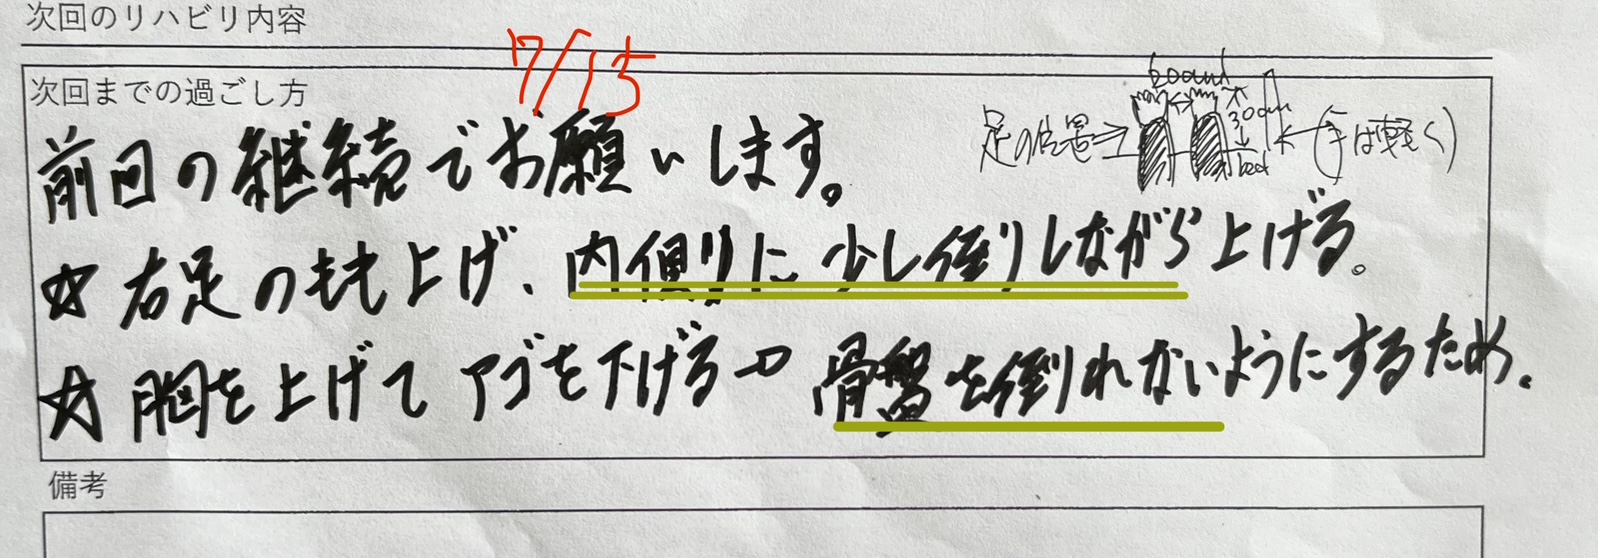 次回のリハビリ内容
7/15
次回までの過ごし方
足の位置→
30cm
←(手は軽く)
前回の継続でお願いします。
☆ 右足のもも上げ、内側に少し倒しながら上げる。
☆ 胸を上げてアゴを下げる→骨盤を倒れないようにするため。
備考